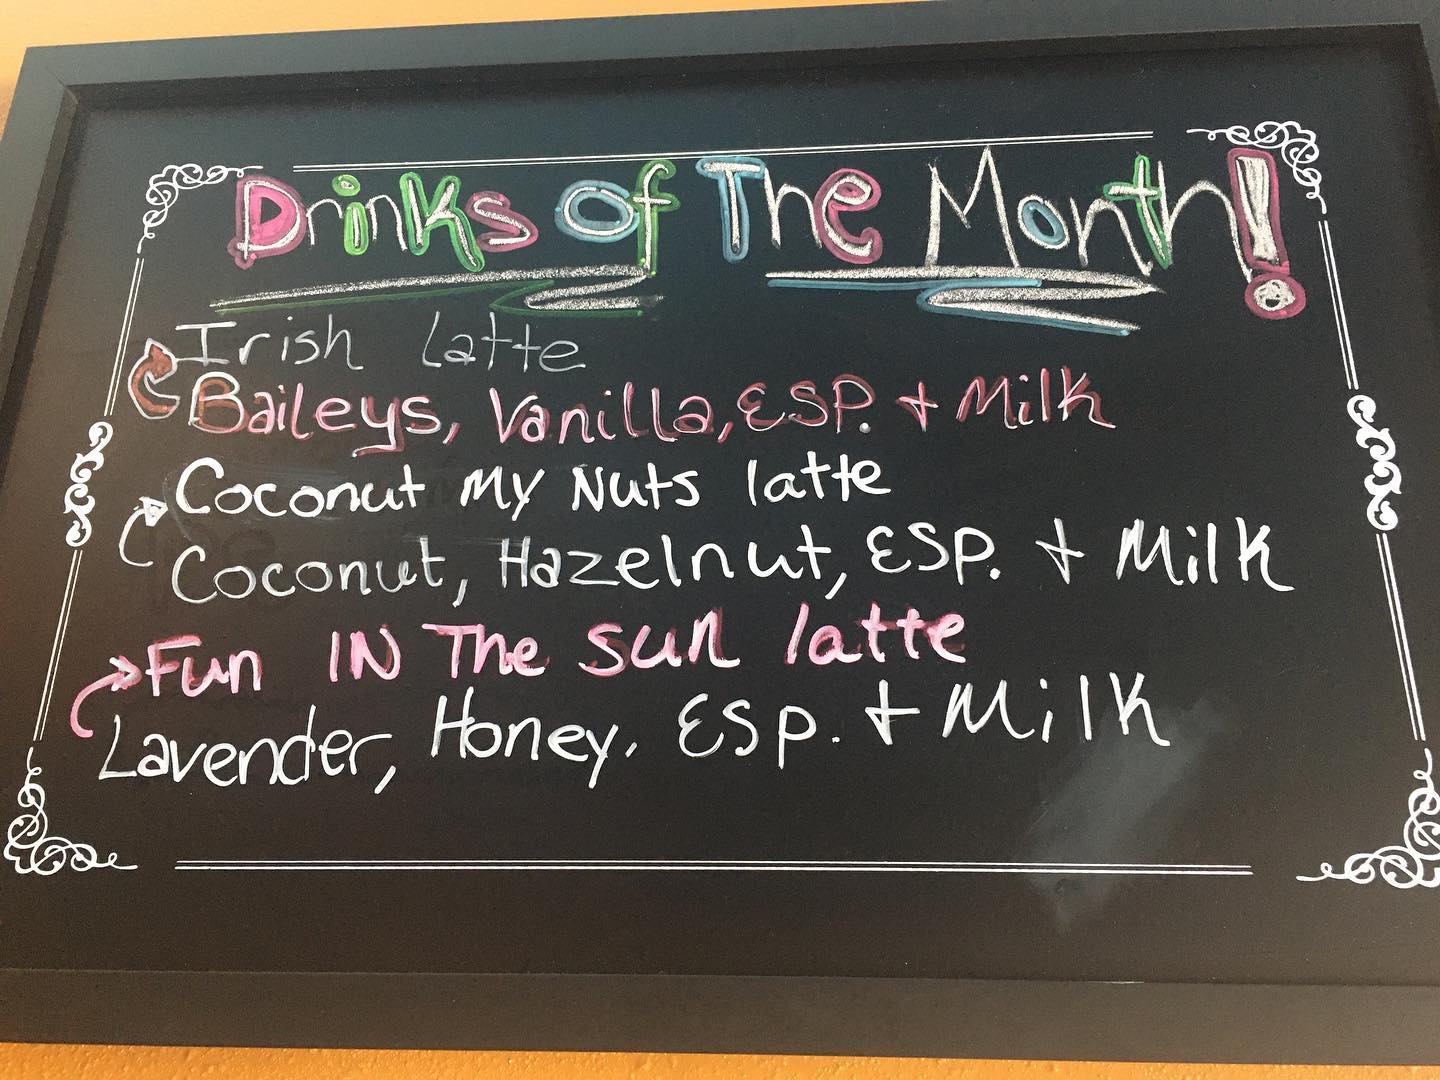 Drinks of The Month!
Irish Latte
Baileys, Vanilla, ESP. + Milk
Coconut My Nuts latte
Coconut, Hazelnut, ESP. + Milk
Fun IN The sun latte
Lavender, Honey, ESP. + Milk